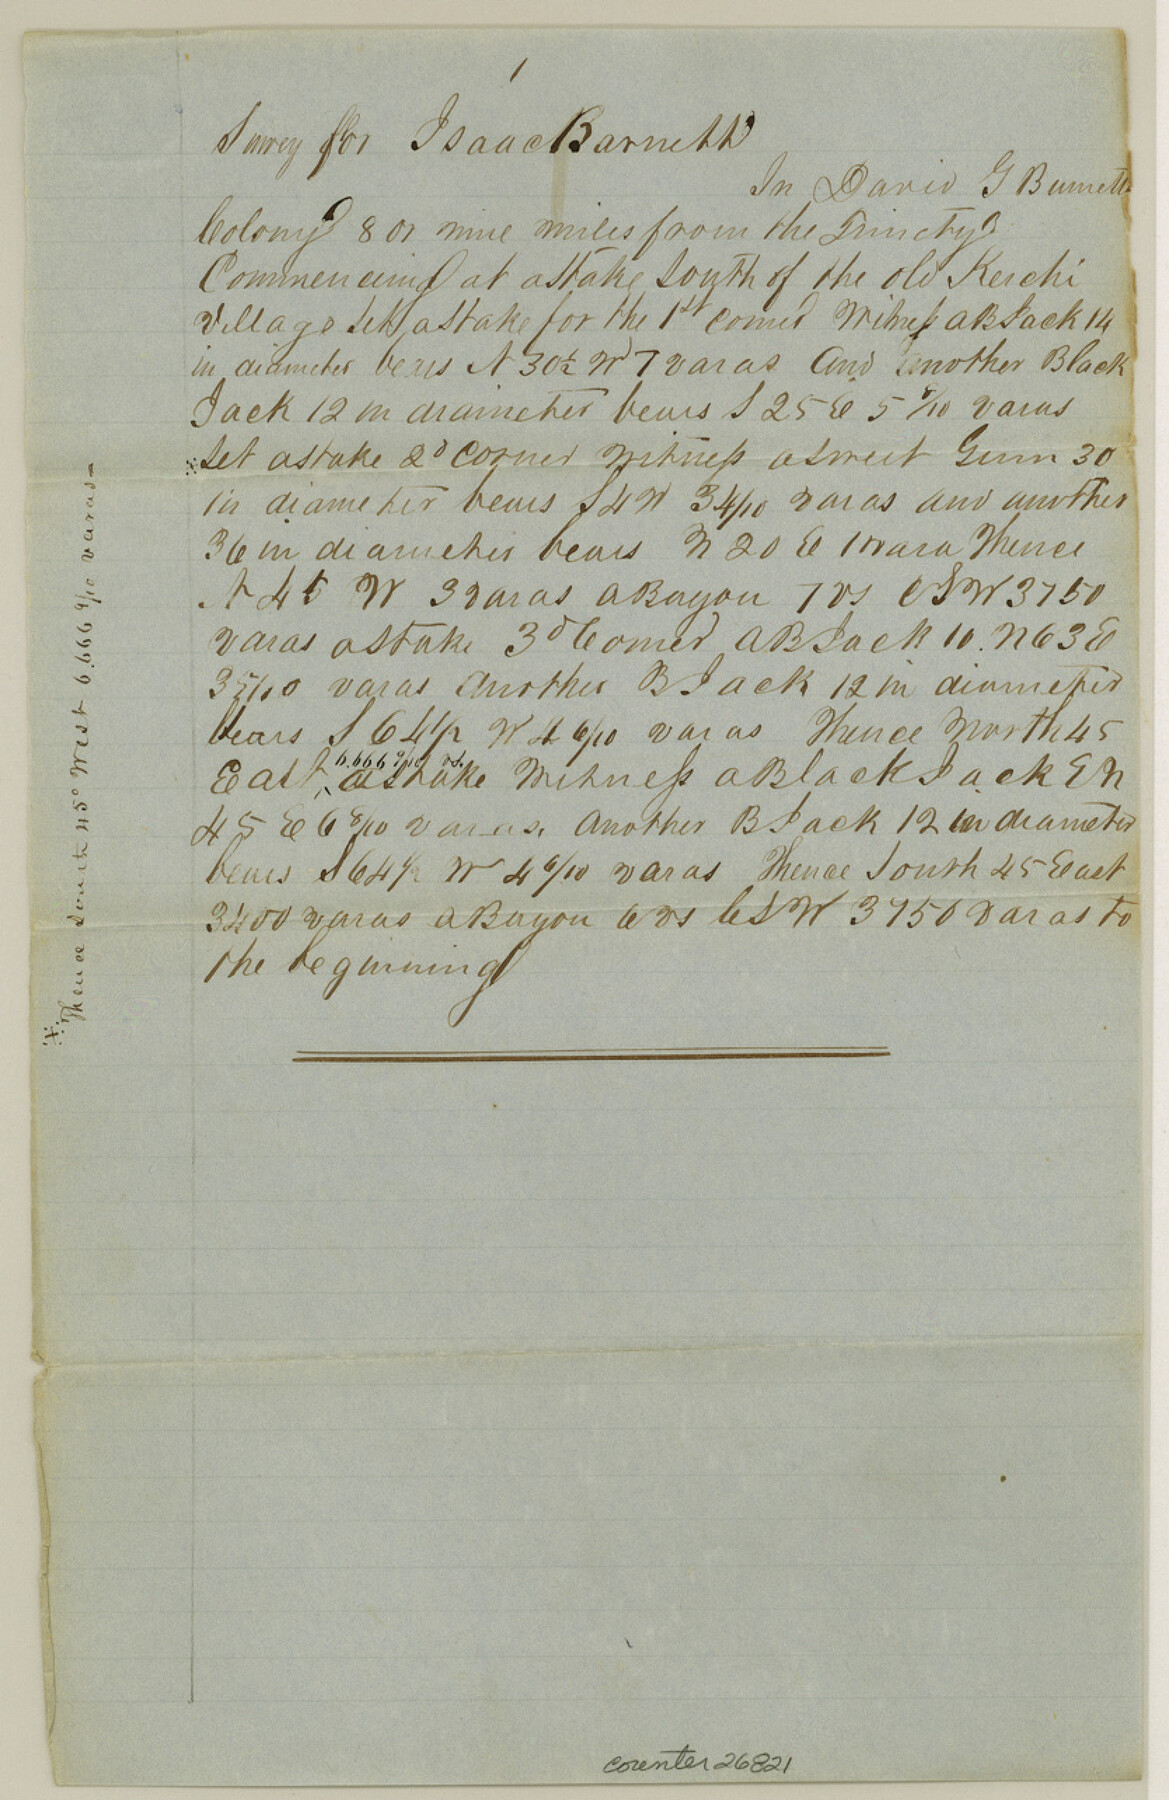 1
Survey for Isaac Barnett
In David G Burnett
Colony 8 or nine miles from the Trinity
Commencing at a stake South of the old Keechi
Village Set a stake for the 1st corner Witness a B Jack 14
in diameter bears N 30½ W 7 varas and another Black
Jack 12 in diameter bears S 25 E 5 8/10 varas
※ Set a stake 2d corner Witness a Sweet Gum 30
in diameter bears S 4 W 3 4/10 varas and another
36 in diameter bears N 20 E 1 vara Thence
N 45 W 3 varas a Bayou 7 vs C S W 3750
varas a stake 3d Corner a B Jack 10. N 63 E
3 5/10 varas another B Jack 12 in diameter
bears S 64½ W 4 6/10 varas Thence North 45
East, 6.666 9/10 vs. a stake Witness a Black Jack 8 N
45 E 6 8/10 varas. another B Jack 12 in diameter
bears S 64½ W 4 6/10 varas Thence South 45 East
3400 varas a Bayou 6 vs C S W 3750 varas to
the beginning
※ Thence South 45° West 6.666 9/10 varas-
counter 26821